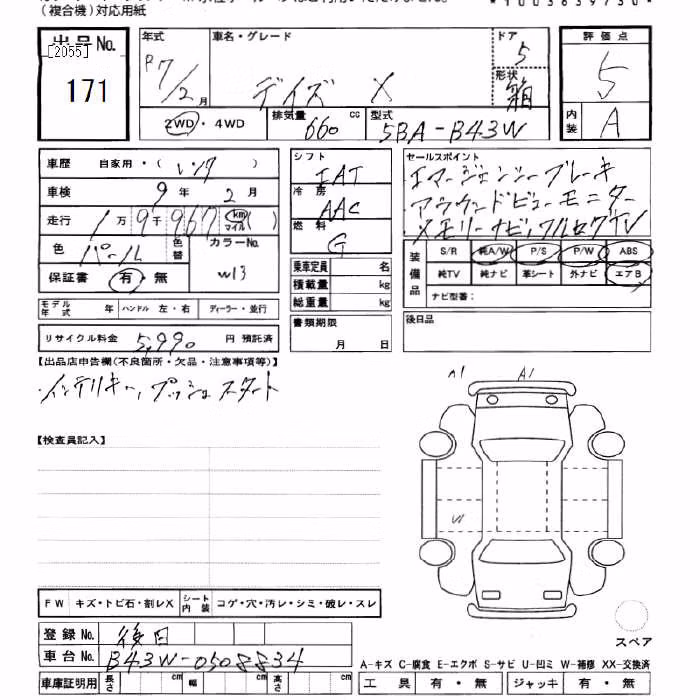 (複合機)対応用紙
出品 No.
[2055]
171
年式
R7/2 月
車名・グレード
デイズ X
ドア
5
形状
箱
評価点
5
内装
A
2WD・4WD
排気量
660 cc
型式
5BA-B43W
車歴 自家用・( レンタ )
車検 9 年 2 月
走行 1 万 9 千 967 km マイル
色 パール
色替
カラーNo.
W13
保証書 有・無
シフト
IAT
冷房
AAC
燃料
G
乗車定員 名
積載量 kg
総重量 kg
セールスポイント
エマージェンシーブレーキ
アラウンドビューモニター
メモリーナビ、フルセグTV
装備品
S/R 純A/W P/S P/W ABS
純TV 純ナビ 革シート 外ナビ エアB
ナビ型番:
モデル年式 年 ハンドル 左・右 ディーラー・並行
書類期限
月 日
後日品
リサイクル料金 5,990 円 預託済
【出品店申告欄(不良箇所・欠品・注意事項等)】
インテリキー、プッシュスタート
【検査員記入】
A1 A1
FW キズ・トビ石・割レX シート内装 コゲ・穴・汚レ・シミ・破レ・スレ
登録 No. 後日
車台 No. B43W-0508834
スペア
A-キズ C-腐食 E-エクボ S-サビ U-凹ミ W-補修 XX-交換済
車庫証明用 長さ cm 幅 cm 高さ cm
工具 有・無 ジャッキ 有・無